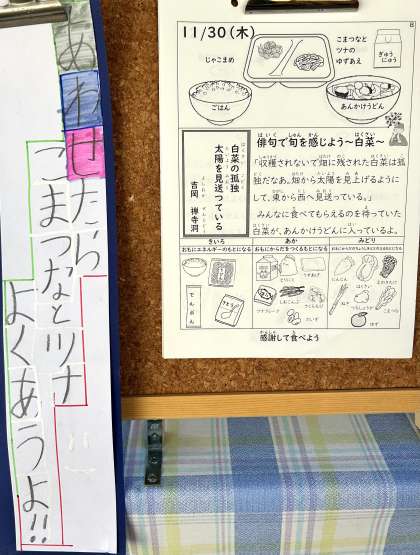 あわせたら
こまつなとツナ
よくあうよ!!
8
11/30(木)
じゃこまめ
こまつなと
ツナの
ゆずあえ
ぎゅう
にゅう
ごはん
あんかけうどん
俳句で旬を感じよう~白菜~
白菜の孤独
太陽を見送つている
吉岡 禅寺洞
「収穫されないで畑に残された白菜は孤
独だなあ。畑から太陽を見上げるように
して、東から西へ見送っている。」
みんなに食べてもらえるのを待っていた
白菜が、あんかけうどんに入っているよ。
きいろ
あか
みどり
おもにエネルギーのもとになる
おもにからだをつくるもとになる
おもにからだのちょうしをととのえるもとになる
でんぷん
さとう
ツナフレーク
だいず
にんじん
はくさい
ねぎ
こまつな
ゆず
感謝して食べよう